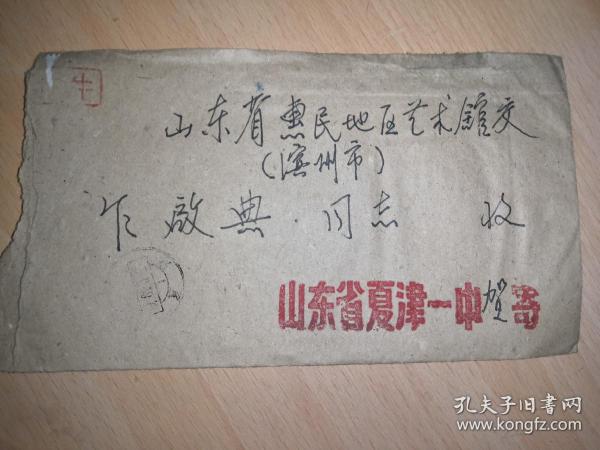 山东省惠民地区艺术馆交
(滨州市)
乍啟典·同志 收
山东省夏津一中贺寄
孔夫子旧书网
www.kongfz.com